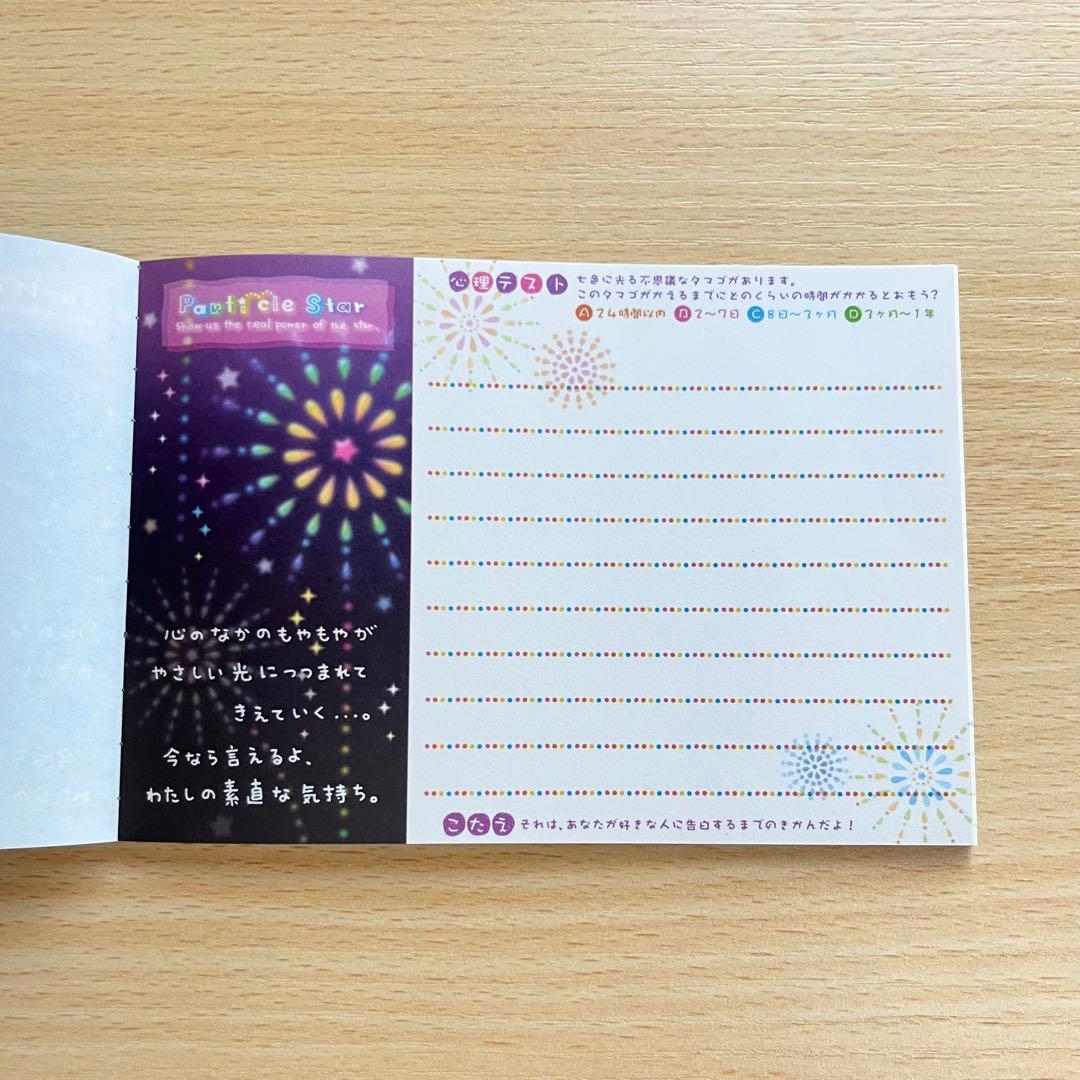 Particle Star
Show us the real power of the star.
心のなかのもやもやが
やさしい光につつまれて
きえていく...。
今なら言えるよ、
わたしの素直な気持ち。
心理テスト 七色に光る不思議なタマゴがあります。
このタマゴがかえるまでにどのくらいの時間がかかるとおもう?
A 24時間以内 B 2〜7日 C 8日〜3ヶ月 D 3ヶ月〜1年
こたえ それは、あなたが好きな人に告白するまでのきかんだよ!